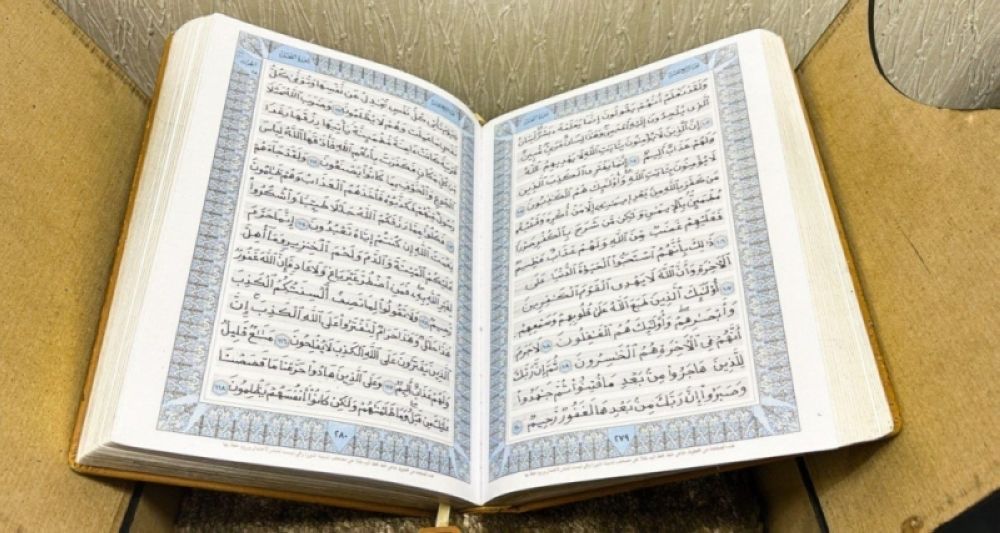 الجزء الرابع عشر
سورة النحل
وَلَقَدْ نَعْلَمُ أَنَّهُمْ يَقُولُونَ إِنَّمَا يُعَلِّمُهُۥ بَشَرٌ لِّسَانُ
ٱلَّذِى يُلْحِدُونَ إِلَيْهِ أَعْجَمِىٌّ وَهَٰذَا لِسَانٌ عَرَبِىٌّ مُّبِينٌ
١٠٣ إِنَّ ٱلَّذِينَ لَا يُؤْمِنُونَ بِـَٔايَٰتِ ٱللَّهِ لَا يَهْدِيهِمُ ٱللَّهُ
وَلَهُمْ عَذَابٌ أَلِيمٌ ١٠٤ إِنَّمَا يَفْتَرِى ٱلْكَذِبَ ٱلَّذِينَ
لَا يُؤْمِنُونَ بِـَٔايَٰتِ ٱللَّهِ وَأُو۟لَٰٓئِكَ هُمُ ٱلْكَٰذِبُونَ ١٠٥
مَن كَفَرَ بِٱللَّهِ مِنۢ بَعْدِ إِيمَٰنِهِۦٓ إِلَّا مَنْ أُكْرِهَ وَقَلْبُهُۥ
مُطْمَئِنٌّۢ بِٱلْإِيمَٰنِ وَلَٰكِن مَّن شَرَحَ بِٱلْكُفْرِ صَدْرًا
فَعَلَيْهِمْ غَضَبٌ مِّنَ ٱللَّهِ وَلَهُمْ عَذَابٌ عَظِيمٌ
١٠٦ ذَٰلِكَ بِأَنَّهُمُ ٱسْتَحَبُّوا۟ ٱلْحَيَوٰةَ ٱلدُّنْيَا عَلَى
ٱلْـَٔاخِرَةِ وَأَنَّ ٱللَّهَ لَا يَهْدِى ٱلْقَوْمَ ٱلْكَٰفِرِينَ
١٠٧ أُو۟لَٰٓئِكَ ٱلَّذِينَ طَبَعَ ٱللَّهُ عَلَىٰ قُلُوبِهِمْ وَسَمْعِهِمْ
وَأَبْصَٰرِهِمْ وَأُو۟لَٰٓئِكَ هُمُ ٱلْغَٰفِلُونَ ١٠٨ لَا جَرَمَ
أَنَّهُمْ فِى ٱلْـَٔاخِرَةِ هُمُ ٱلْخَٰسِرُونَ ١٠٩ ثُمَّ إِنَّ رَبَّكَ
لِلَّذِينَ هَاجَرُوا۟ مِنۢ بَعْدِ مَا فُتِنُوا۟ ثُمَّ جَٰهَدُوا۟
وَصَبَرُوٓا۟ إِنَّ رَبَّكَ مِنۢ بَعْدِهَا لَغَفُورٌ رَّحِيمٌ ١١٠
٢٧٩
الجزء الرابع عشر
سورة النحل
يَوْمَ تَأْتِى كُلُّ نَفْسٍ تُجَٰدِلُ عَن نَّفْسِهَا وَتُوَفَّىٰ كُلُّ
نَفْسٍ مَّا عَمِلَتْ وَهُمْ لَا يُظْلَمُونَ ١١١ وَضَرَبَ ٱللَّهُ مَثَلًا
قَرْيَةً كَانَتْ ءَامِنَةً مُّطْمَئِنَّةً يَأْتِيهَا رِزْقُهَا رَغَدًا
مِّن كُلِّ مَكَانٍ فَكَفَرَتْ بِأَنْعُمِ ٱللَّهِ فَأَذَٰقَهَا ٱللَّهُ لِبَاسَ
ٱلْجُوعِ وَٱلْخَوْفِ بِمَا كَانُوا۟ يَصْنَعُونَ ١١٢ وَلَقَدْ جَآءَهُمْ
رَسُولٌ مِّنْهُمْ فَكَذَّبُوهُ فَأَخَذَهُمُ ٱلْعَذَابُ وَهُمْ ظَٰلِمُونَ
١١٣ فَكُلُوا۟ مِمَّا رَزَقَكُمُ ٱللَّهُ حَلَٰلًا طَيِّبًا وَٱشْكُرُوا۟
نِعْمَتَ ٱللَّهِ إِن كُنتُمْ إِيَّاهُ تَعْبُدُونَ ١١٤ إِنَّمَا حَرَّمَ
عَلَيْكُمُ ٱلْمَيْتَةَ وَٱلدَّمَ وَلَحْمَ ٱلْخِنزِيرِ وَمَآ أُهِلَّ
لِغَيْرِ ٱللَّهِ بِهِۦ فَمَنِ ٱضْطُرَّ غَيْرَ بَاغٍ وَلَا عَادٍ فَإِنَّ ٱللَّهَ غَفُورٌ
رَّحِيمٌ ١١٥ وَلَا تَقُولُوا۟ لِمَا تَصِفُ أَلْسِنَتُكُمُ ٱلْكَذِبَ
هَٰذَا حَلَٰلٌ وَهَٰذَا حَرَامٌ لِّتَفْتَرُوا۟ عَلَى ٱللَّهِ ٱلْكَذِبَ إِنَّ
ٱلَّذِينَ يَفْتَرُونَ عَلَى ٱللَّهِ ٱلْكَذِبَ لَا يُفْلِحُونَ ١١٦ مَتَٰعٌ قَلِيلٌ
وَلَهُمْ عَذَابٌ أَلِيمٌ ١١٧ وَعَلَى ٱلَّذِينَ هَادُوا۟ حَرَّمْنَا مَا قَصَصْنَا
عَلَيْكَ مِن قَبْلُ وَمَا ظَلَمْنَٰهُمْ وَلَٰكِن كَانُوٓا۟ أَنفُسَهُمْ يَظْلِمُونَ ١١٨
٢٨٠